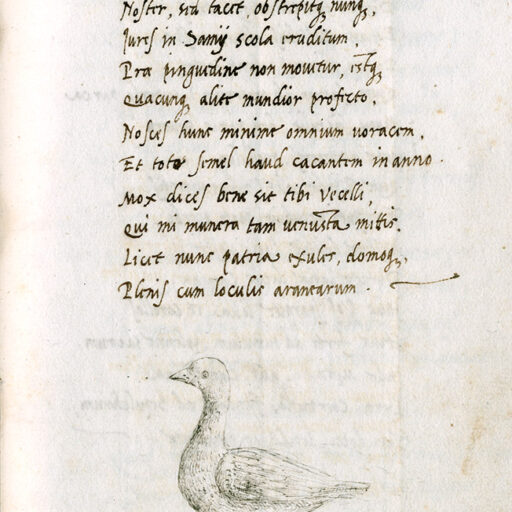 Noster, sed tacet, obstrepitq; nunq;,
Jures in Samij scola eruditum.
Pra pinguedine non mouetur, estq;
Quacunq; alite mundior profecto.
Nosces hunc minime omnium uoracem,
Et toto semel haud cacantem in anno.
Mox dices bene sit tibi Vecelli,
Qui mi munera tam uenusta mittis.
Licet nunc patria exules, domoq;,
Plenis cum loculis aranearum.